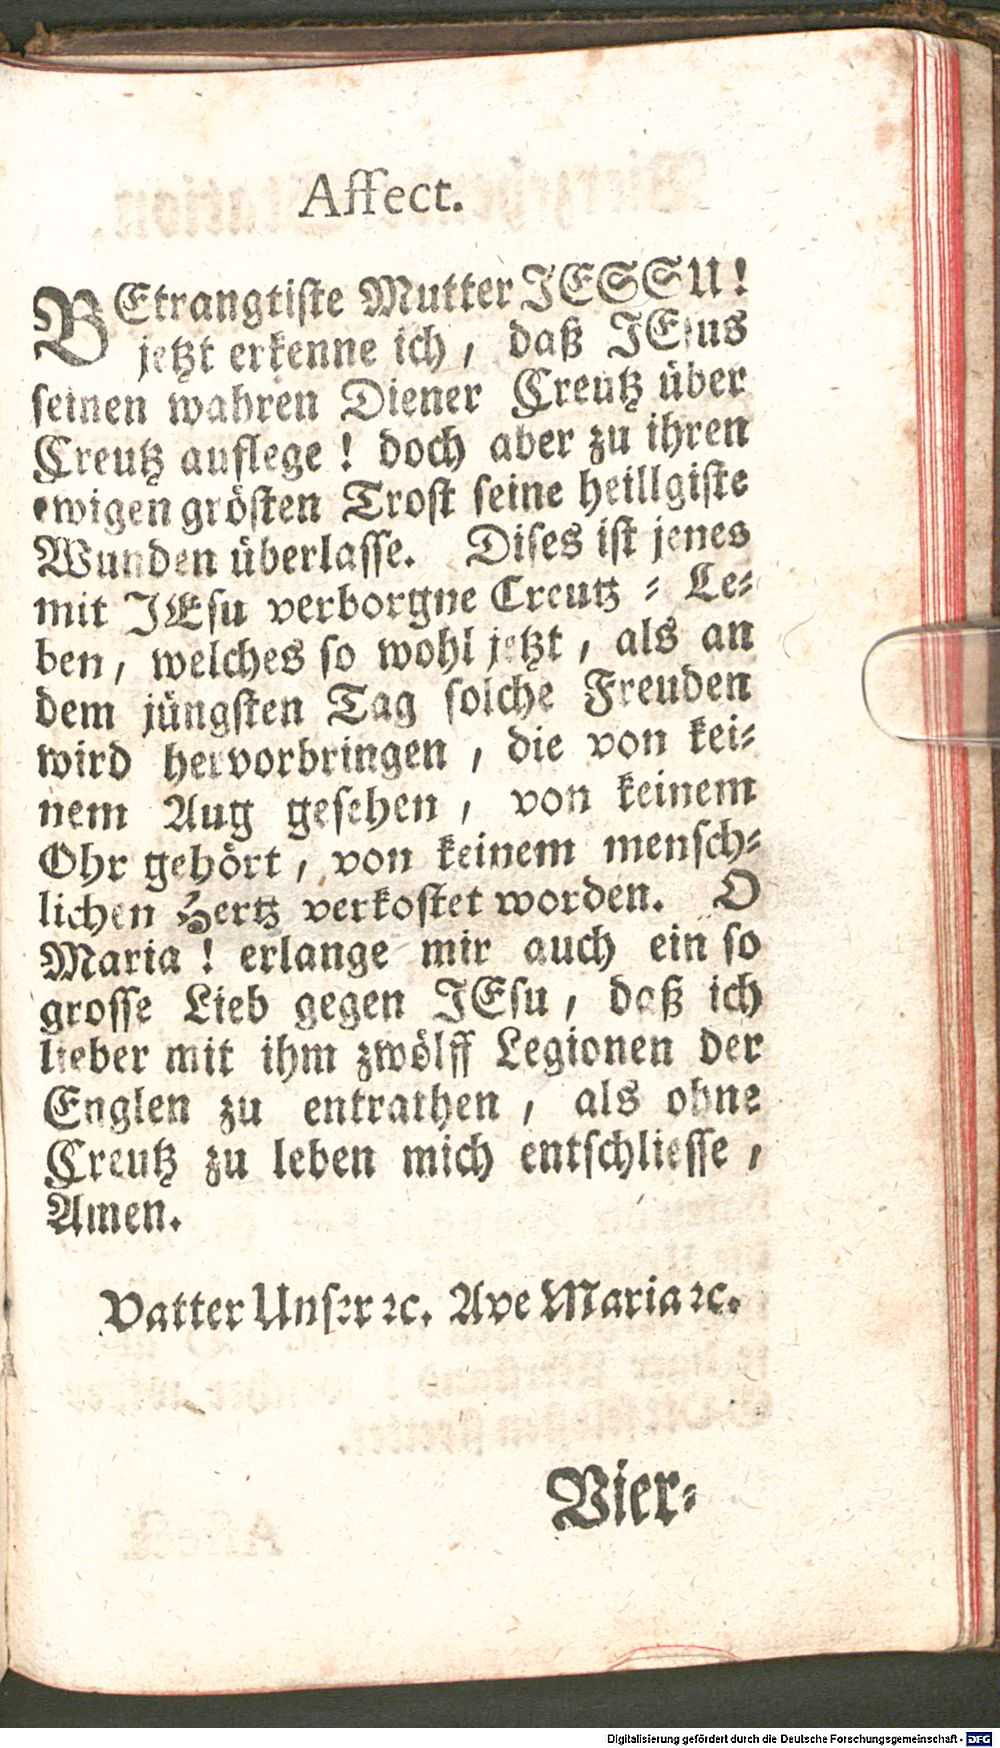 Affect.
BEtrangtiste Mutter JESSU!
jetzt erkenne ich, daß JEsus
seinen wahren Diener Creutz über
Creutz auflege! doch aber zu ihren
ewigen grösten Trost seine heillgiste
Wunden überlasse. Dises ist jenes
mit JEsu verborgne Creutz-Le-
ben, welches so wohl jetzt, als an
dem jüngsten Tag solche Freuden
wird hervorbringen, die von kei-
nem Aug gesehen, von keinem
Ohr gehört, von keinem mensch-
lichen Hertz verkostet worden. O
Maria! erlange mir auch ein so
grosse Lieb gegen JEsu, daß ich
lieber mit ihm zwölff Legionen der
Englen zu entrathen, als ohne
Creutz zu leben mich entschliesse,
Amen.
Vatter Unser ꝛc. Ave Maria ꝛc.
Vier-
Digitalisierung gefördert durch die Deutsche Forschungsgemeinschaft - DFG